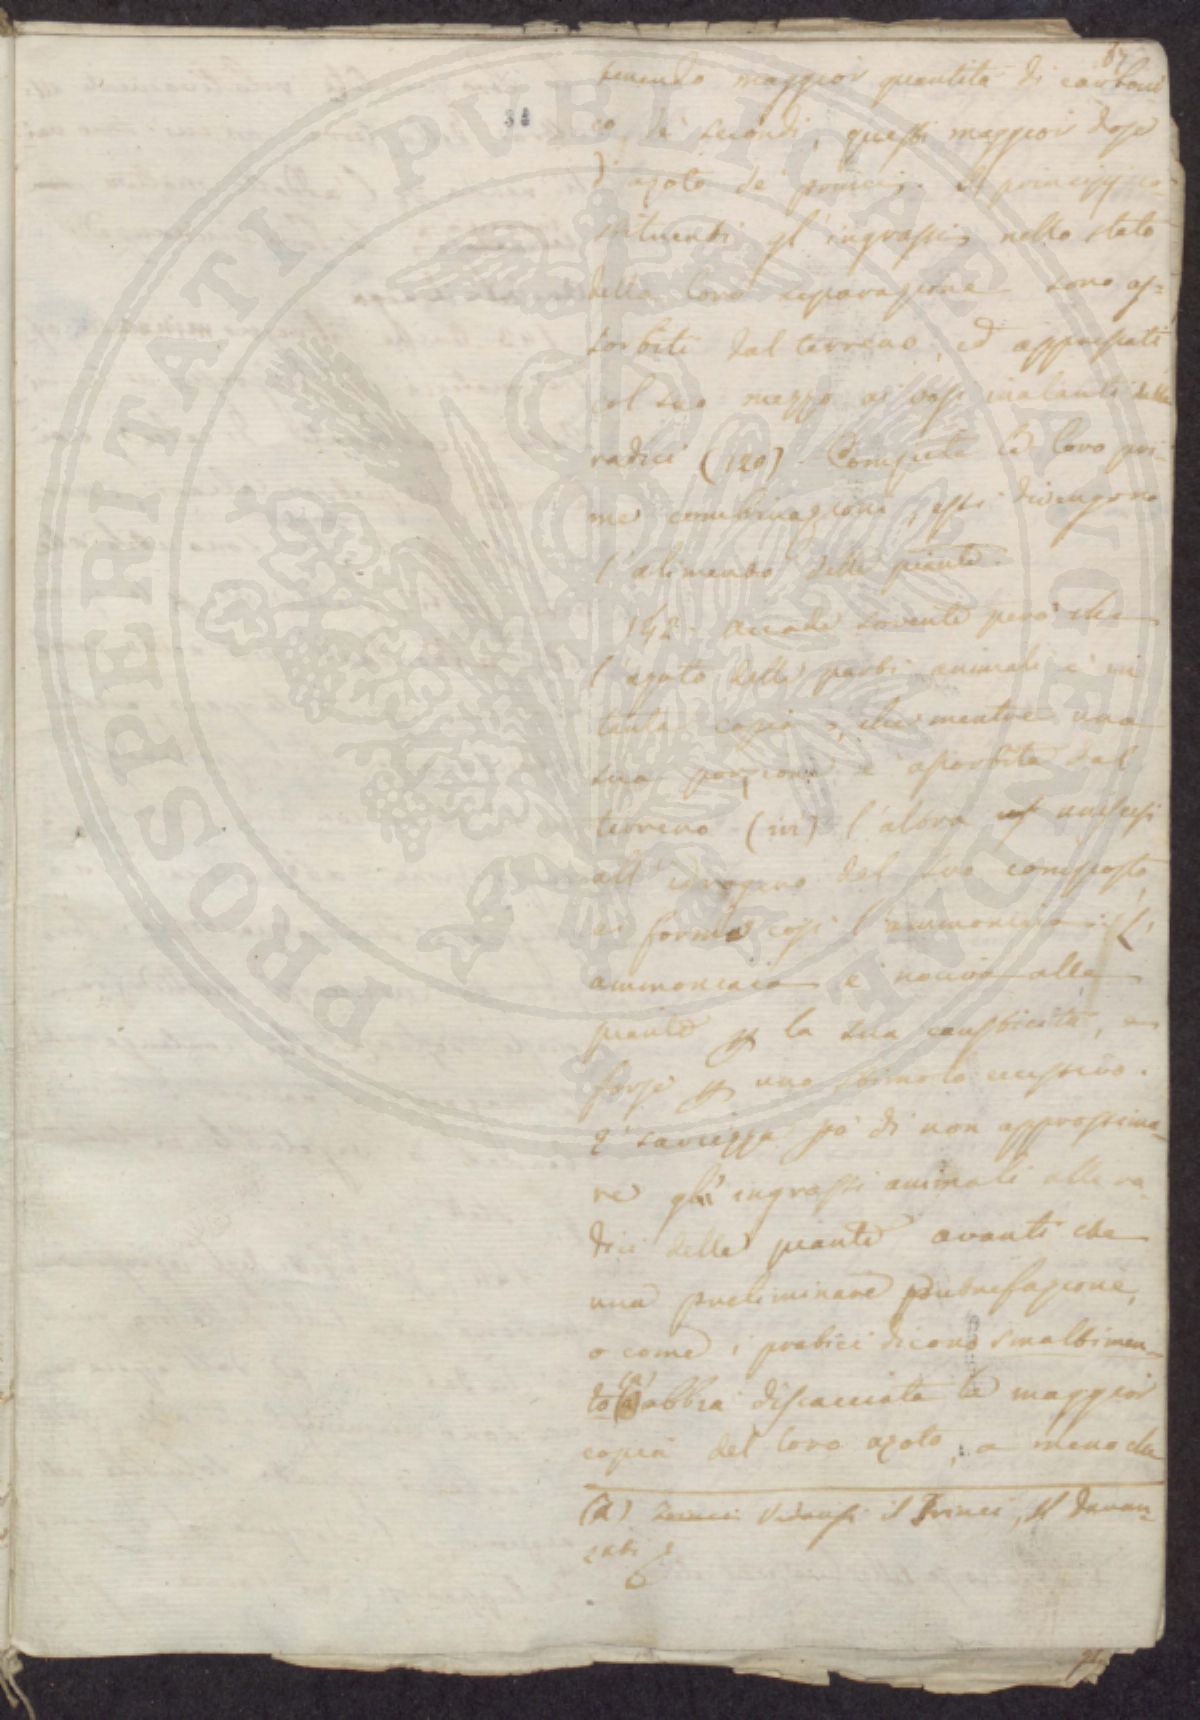 37
34
tenendo maggior quantità di carboni
co, i secondi, questi maggior dose
d'azoto de' primi. I principj co-
stituenti gl'ingrassi nello stato
della loro separazione sono as=
sorbiti dal terreno, ed apprestati
col suo mezzo ai vasi inalanti delle
radici (120). Compiute le loro pri-
me combinazioni, essi divengono
l'alimento delle piante.
142. Accade sovente però che
l'azoto delle parti animali è in
tanta copia, che mentre una
sua porzione è assorbita dal
terreno (121) l'altra uniscesi
all'idrogeno del suo composto,
e forma così l'ammoniaca. L'
ammoniaca è nociva alle
piante p la sua causticità, e
forse p uno stimolo eccessivo.
È saviezza pò di non approssima-
re gl'ingrassi animali alle ra-
dici delle piante avanti che
una preliminare putrefazione,
o come i pratici dicono smaltimen-
to (a) abbia discacciata la maggior
copia del loro azoto, a meno che
(a) Vedansi il Trinci, il Davan-
zati
PROSPERITATI PUBLICAE AUGENDAE